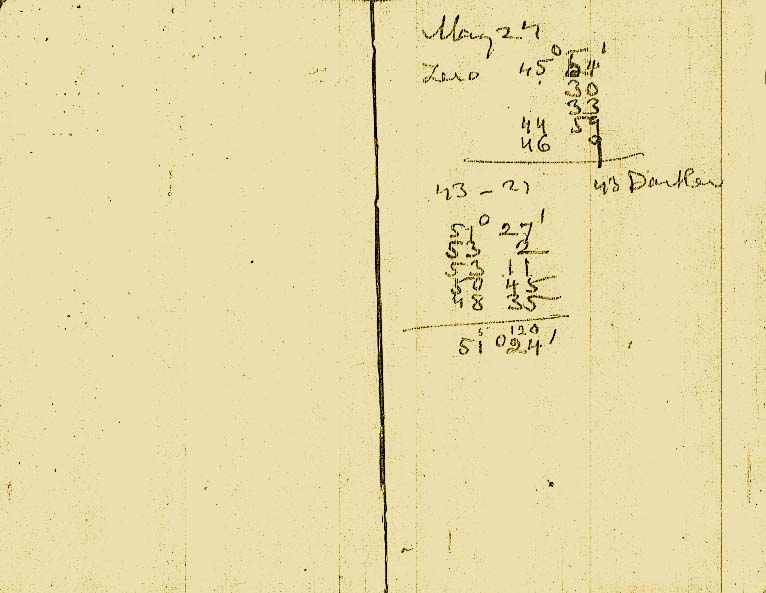 May 27
Zero 45° 54'
30
33
44 59
46 9
43 Darker
43 - 27
51° 27'
53 2
53 11
50 45
48 35
5 120
51 ° 24'